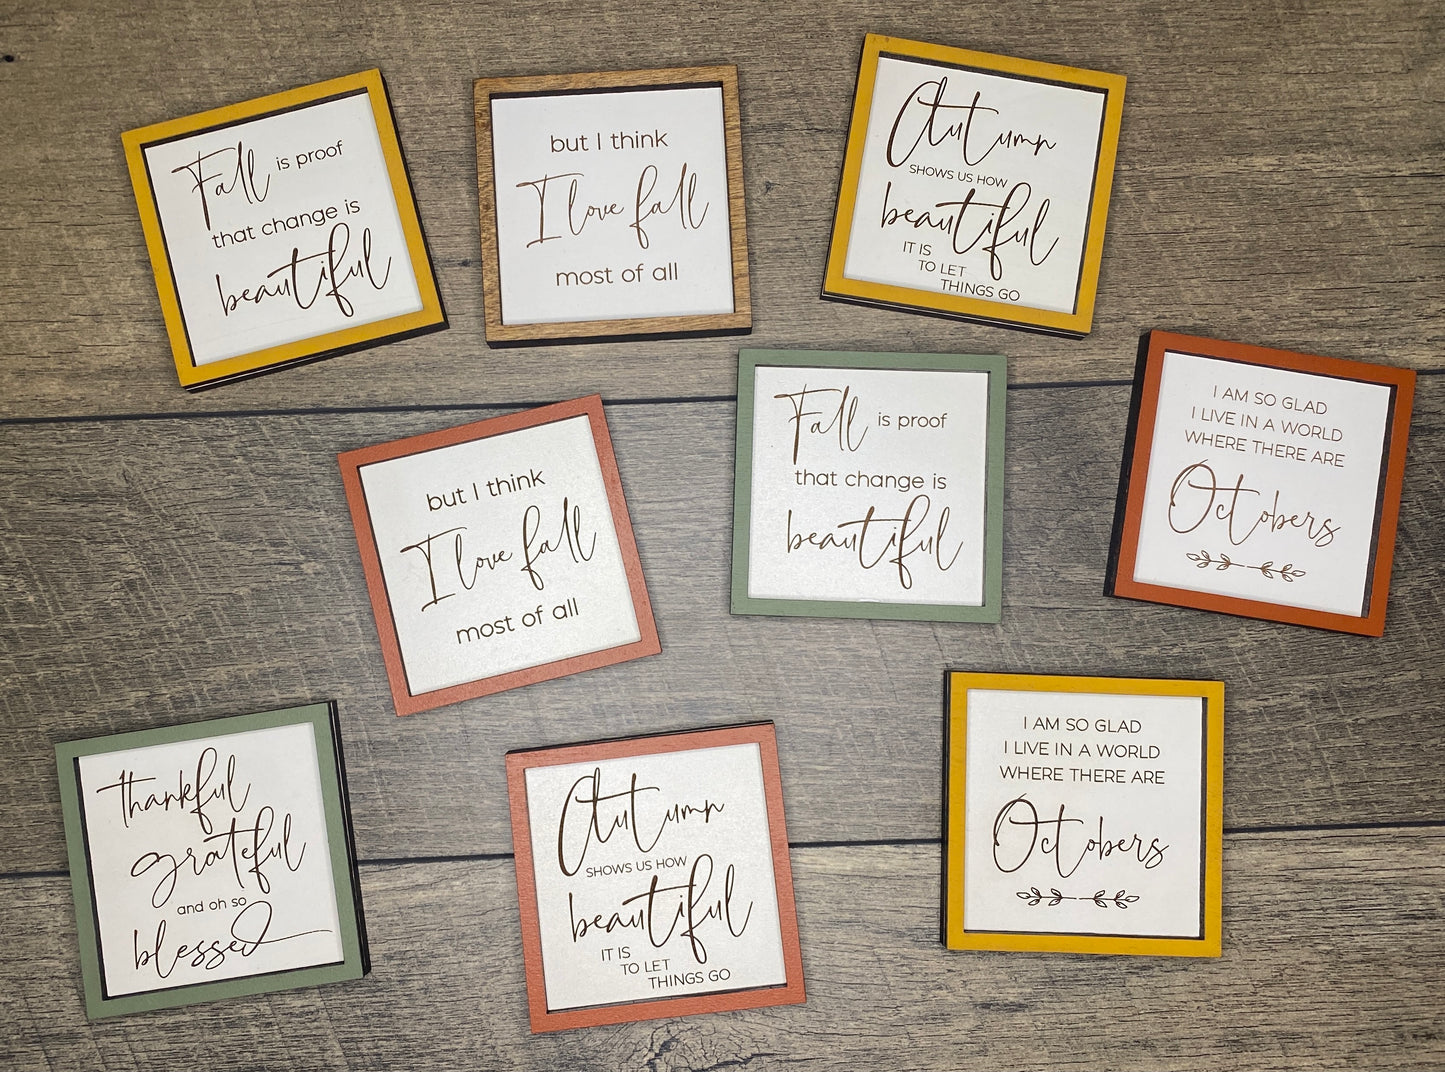 Fall is proof
that change is
beautiful
but I think
I love fall
most of all
Autumn
SHOWS US HOW
beautiful
IT IS
TO LET
THINGS GO
but I think
I love fall
most of all
Fall is proof
that change is
beautiful
I AM SO GLAD
I LIVE IN A WORLD
WHERE THERE ARE
Octobers
thankful
grateful
and oh so
blessed
Autumn
SHOWS US HOW
beautiful
IT IS
TO LET
THINGS GO
I AM SO GLAD
I LIVE IN A WORLD
WHERE THERE ARE
Octobers